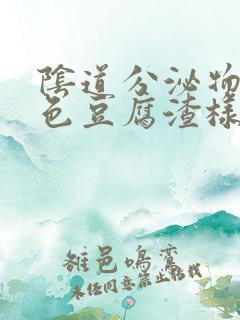 陰道分泌物
色豆腐渣樣
雒邑鳴鸞
未经同意禁止转载